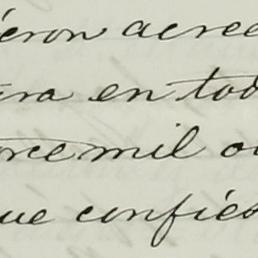 éron acree
ra en tod
orce mil o
ue confies